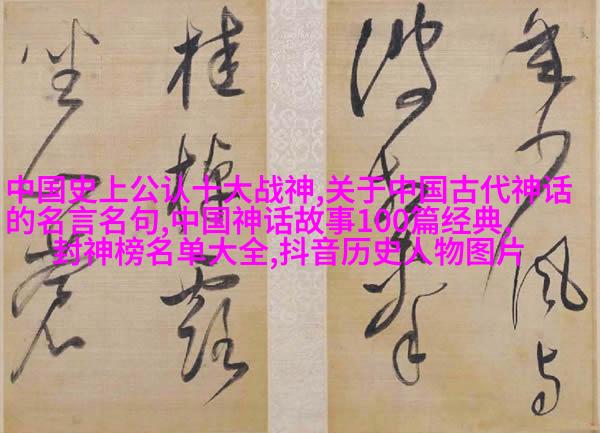 中国史上公认十大战神,关于中国古代神话
的名言名句,中国神话故事100篇经典,
封神榜名单大全,抖音历史人物图片
少風与
波
桂棹露
坐蒼